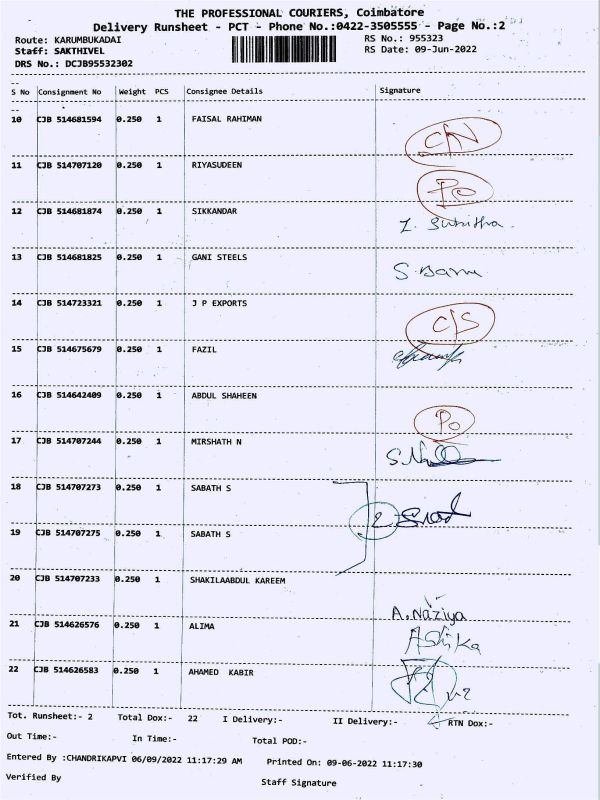 THE PROFESSIONAL COURIERS, Coimbatore
Delivery Runsheet - PCT - Phone No.:0422-3505555 - Page No.:2
Route: KARUMBUKADAI RS No.: 955323
Staff: SAKTHIVEL RS Date: 09-Jun-2022
DRS No.: DCJB95532302
S No Consignment No Weight PCS Consignee Details Signature
10 CJB 514681594 0.250 1 FAISAL RAHIMAN
C/N
11 CJB 514707120 0.250 1 RIYASUDEEN
PO
12 CJB 514681874 0.250 1 SIKKANDAR
Z. Sunitha
13 CJB 514681825 0.250 1 GANI STEELS
S. Banu
14 CJB 514723321 0.250 1 J P EXPORTS
C/S
15 CJB 514675679 0.250 1 FAZIL
16 CJB 514642409 0.250 1 ABDUL SHAHEEN
PO
17 CJB 514707244 0.250 1 MIRSHATH N
18 CJB 514707273 0.250 1 SABATH S
2
19 CJB 514707275 0.250 1 SABATH S
20 CJB 514707233 0.250 1 SHAKILAABDUL KAREEM
A. Naziya
21 CJB 514626576 0.250 1 ALIMA
Ashika
22 CJB 514626583 0.250 1 AHAMED KABIR
Tot. Runsheet:- 2 Total Dox:- 22 I Delivery:- II Delivery:- RTN Dox:-
Out Time:- In Time:- Total POD:-
Entered By :CHANDRIKAPVI 06/09/2022 11:17:29 AM Printed On: 09-06-2022 11:17:30
Verified By Staff Signature